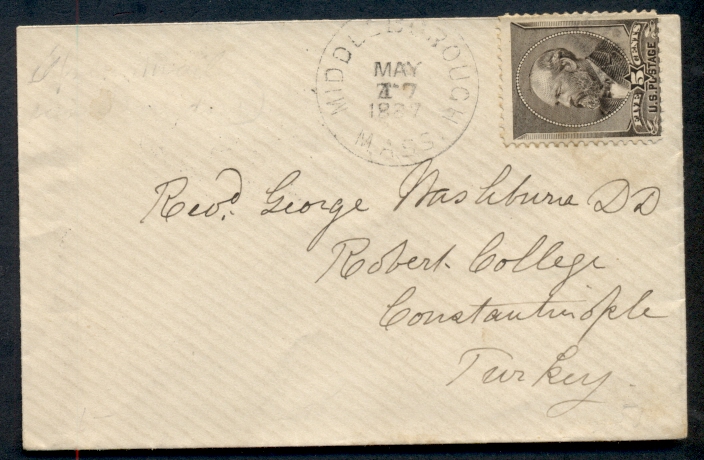 MIDDLEBOROUGH
MAY
7
1887
MASS.
FIVE 5 CENTS
U.S. POSTAGE
Revd. George Washburn DD
Robert College
Constantinople
Turkey.